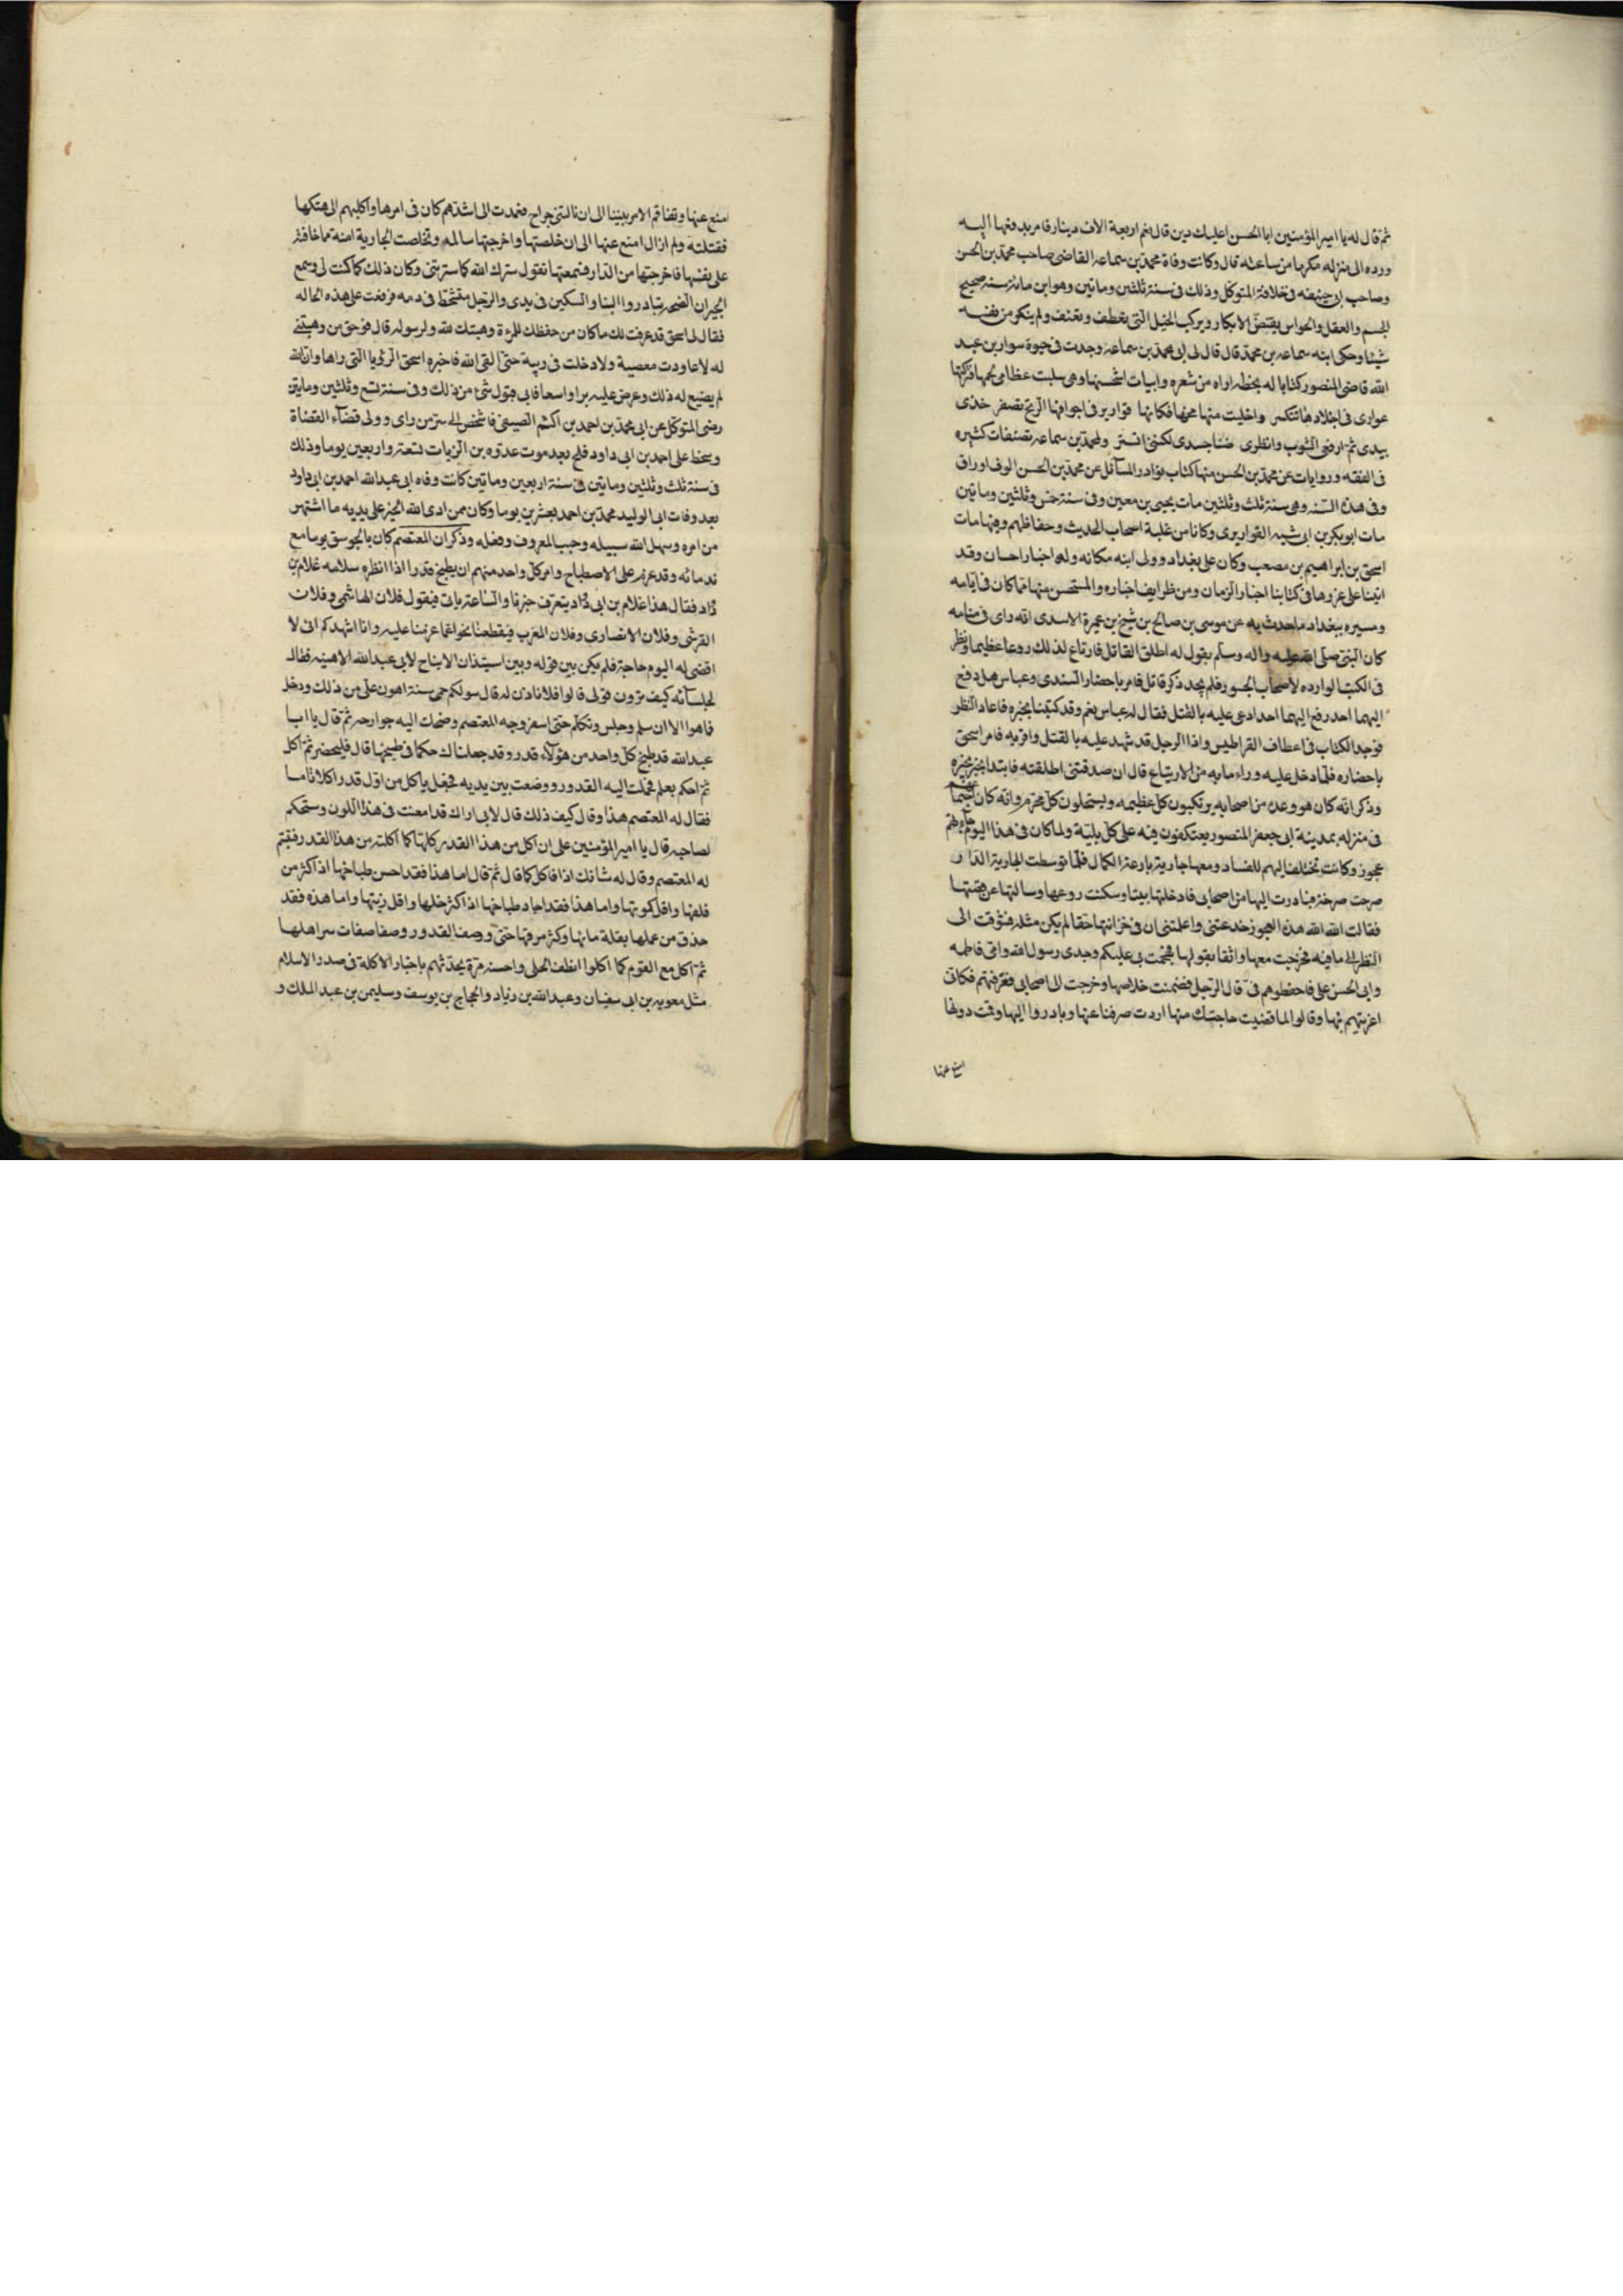 ثم قال له يا امير المؤمنين ابا الحسن اعليك دين قال نعم اربعة الاف دينار فامر بدفعها اليه
ورده الى منزله مكرما من ساعته قال وكانت وفاة محمد بن سماعه القاضى صاحب محمد بن الحسن
وصاحب ابى حنيفه فى خلافة المتوكل وذلك فى سنة ثلثين وماتين وهو ابن مائة سنة صحيح
الجسم والعقل والحواس يفتض الابكار ويركب الخيل التى تعطف وتعنف ولم ينكر من نفسه
شيئا وحكى ابنه سماعه بن محمد قال قال لى ابى محمد بن سماعه وجدت فى حيوة سوار بن عبد
الله قاضى المنصور كتابا له بخطه اراه من شعره وابيات استحسنها وهى سلبت عظامى لحمها فتركتها
عوارى فى اجلادها تتكسر واخليت منها مخها فكانها قوارير فى اجوافها الريح تصفر خذى
بيدى ثم ارفعى الثوب وانظرى ضنا جسدى لكننى اتستر ولمحمد بن سماعه تصنيفات كثيره
فى الفقه وروايات عن محمد بن الحسن منها كتاب نوادر المسائل عن محمد بن الحسن الوف اوراق
وفى هذه السنه وهى سنة ثلث وثلثين مات يحيى بن معين وفى سنة خمس وثلثين وماتين
مات ابو بكر بن ابى شيبه القواريرى وكانا من غلبة اصحاب الحديث وحفاظهم وفيها مات
اسحق بن ابراهيم بن مصعب وكان على بغداد وولى ابنه مكانه وله اخبار احسان وقد
اتينا على غررها فى كتابنا اخبار الزمان ومن ظرايف اخباره والمستحسن منها مما كان فى ايامه
ومسيره ببغداد ما حدث به عن موسى بن صالح بن شيخ بن عميرة الاسدى انه راى فى منامه
كان النبى صلى الله عليه واله وسلم يقول له اطلق القاتل فارتاع لذلك روعا عظيما ونظر
فى الكتب الوارده لاصحاب الحبوس فلم يجد ذكر قاتل فامر باحضار السندى وعباس هل دفع
اليهما احد رفع اليهما احد ادعى عليه بالقتل فقال له عباس نعم وقد كتبنا بخبره فاعاد النظر
فوجد الكتاب فى اعطاف القراطيس واذا الرجل قد شهد عليه بالقتل واقر به فامر اسحق
باحضاره فلما دخل عليه وراء ما به من الارتياع قال ان صدقتنى اطلقته فابتدا يخبر بخبره
وذكر انه كان هو وعده من اصحابه يرتكبون كل عظيمه ويستحلون كل محرم وانه كان
فى منزله بمدينة ابى جعفر المنصور يعتكفون فيه على كل بلية ولما كان فى هذا اليوم جاءتهم
عجوز وكانت تختلف اليهم للفساد ومعها جارية بارعة الكمال فلما توسطت الجارية الدار
صرخت صرخة فبادرت اليها من اصحابى فادخلتها بيتا وسكنت روعها وسالتها عن قصتها
فقالت الله الله هذه العجوز خدعتنى واعلمتنى ان فى خزانتها حقا لم يكن مثله فشوقت الى
النظر الى ما فيه فخرجت معها واثقا بقولها فهجمت بى عليكم وجدى رسول الله وامى فاطمه
وابى الحسن على فاحفظوهم فى قال الرجل فضمنت خلاصها وخرجت الى اصحابى فعرفتهم فكانى
اغريتهم بها وقالوا لما قضيت حاجتك منها اردت صرفنا عنها وبادروا اليها وقمت دونها
امنع عنها
امنع عنها وتفاقم الامر بيننا الى ان نالتنى جراح فعمدت الى اشدهم كان فى امرها واكلبهم الى هتكها
فقتلته ولم ازال امنع عنها الى ان خلصتها واخرجتها سالمه وتخلصت الجارية امنة مما خافته
على نفسها فاخرجتها من الدار فسمعتها تقول سترك الله كما سترتنى وكان ذلك كما كنت لى وسمع
الجيران الضجه فتبادروا الينا والسكين فى يدى والرجل متشحط فى دمه فرفعت على هذه الحاله
فقال له اسحق قد عرفت لك ما كان من حفظك للمرءة وهبتك لله ولرسوله قال فوحق من وهبتنى
له لا عاودت معصية ولا دخلت فى ريبة حتى القى الله فاخبره اسحق الرؤيا التى راها وان الله
لم يضيع له ذلك وعرض عليه برا واسعا فابى قبول شئ من ذلك وفى سنة تسع وثلثين وماتين
رضى المتوكل عن ابى محمد بن احمد بن اكثم الصيفى فاشخص الى سر من راى وولى قضاء القضاة
وسخط على احمد بن ابى داود فلج بعد موت عدوه بن الزيات تسعة واربعين يوما وذلك
فى سنة ثلث وثلثين وماتين فى سنة اربعين وماتين كانت وفاه ابى عبدالله احمد بن ابى داود
بعد وفات ابى الوليد محمد بن احمد بعشرين يوما وكان ممن ادى الله الخير على يديه ما اشتهر
من امره وسهل الله سبيله وحبب المعروف وفضله وذكر ان المعتصم كان بالجوسق يوما مع
ندمائه وقد عزم على الاصطباح وامر كل واحد منهم ان يطبخ قدرا اذا انظره سلامه غلام بن
داد فقال هذا غلام بن ابى داد يتعرف خبرنا والساعة ياتى فيقول فلان الهاشمى وفلان
القرشى وفلان الانصارى وفلان العرب فيقطعنا بحوائجه عما عزمنا عليه وانا اشهدكم انى لا
اقضى له اليوم حاجة فلم يكن بين قوله وبين استيذان الايتاح لابى عبدالله الا هنيه فقال
لجلسائه كيف ترون قولى قالوا فلا ناذن له قال سولكم حمى سنة اهون على من ذلك ودخل
فاهوا الا ان سلم وجلس وتكلم حتى اسفر وجه المعتصم وضحك اليه جوارحه ثم قال يا ابا
عبدالله قد طبخ كل واحد من هؤلاء قدر وقد جعلناك حكما فى طبخها قال فليحضر ثم اكل
ثم احكم بعلم فحملت اليه القدور ووضعت بين يديه فجعل ياكل من اول قدر اكلا تاما
فقال له المعتصم هذا وقال كيف ذلك قال لانى اراك قد امعنت فى هذا اللون وستحكم
لصاحبه قال يا امير المؤمنين على ان اكل من هذا القدر كلها كما اكلت من هذا القدر فتبسم
له المعتصم وقال له شانك اذا فاكل كما قال ثم قال اما هذا فقد احسن طباخها اذ اكثر من
فلفلها واقل كمونها واما هذا فقد اجاد طباخها اذ اكثر خلها واقل زيتها واما هذه فقد
حذق من عملها بقلة مائها وكثر مرقها حتى وصف القدور وصفا صفات سر اهلها
ثم اكل مع القوم كما اكلوا انظف اكل واحسنه مرة يحدثهم باخبار الاكلة فى صدر الاسلام
مثل معويه بن ابى سفيان وعبد الله بن زياد والحجاج بن يوسف وسليمن بن عبد الملك و